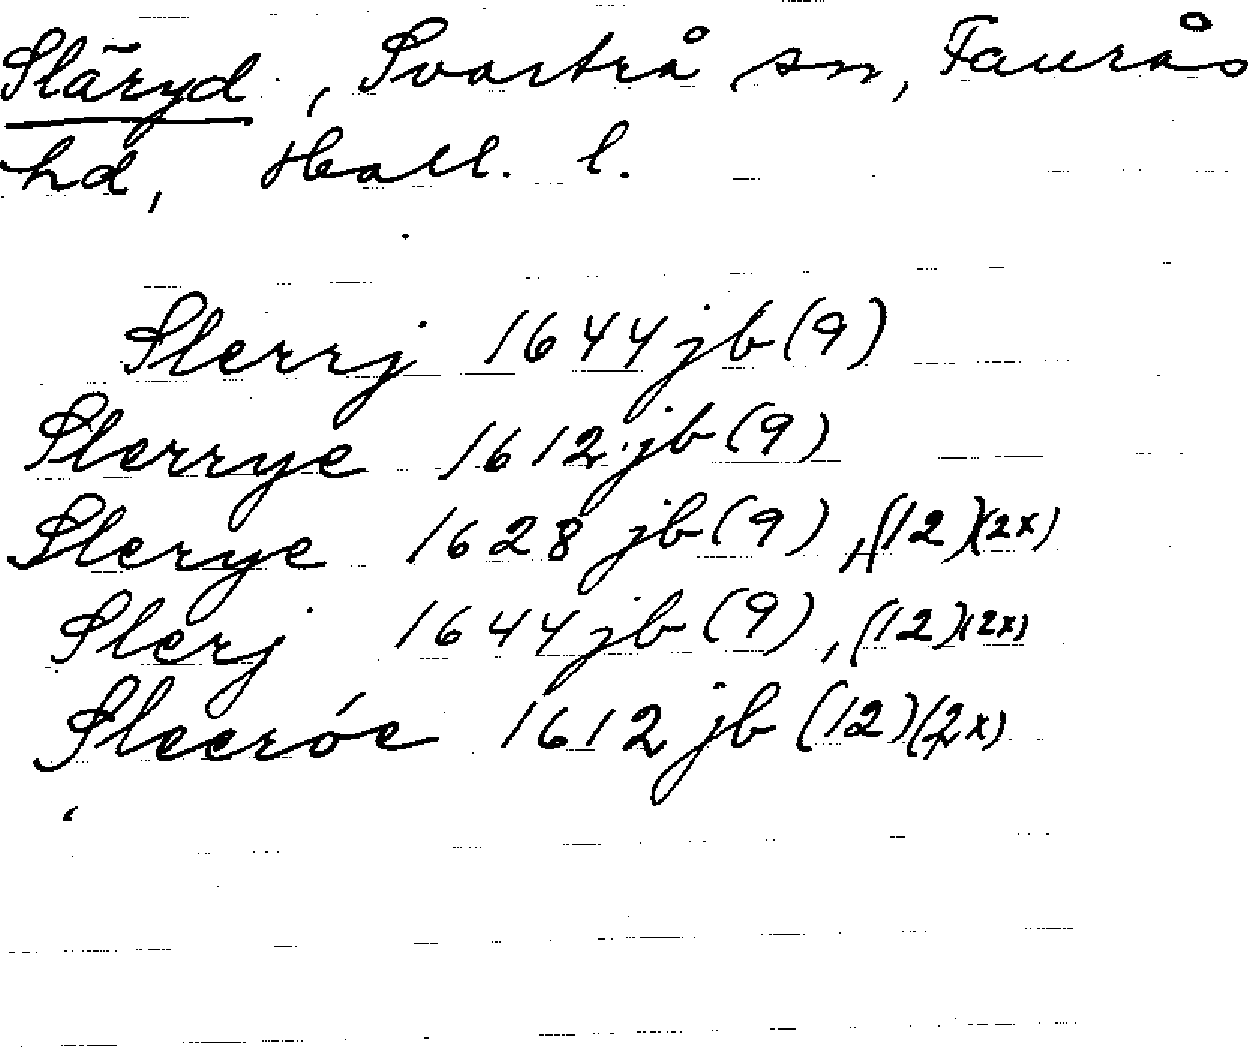 Släryd, Svartrå sn, Faurås
hd, Hall. l.
Slerrj 1644 jb (9)
Slerrye 1612 jb (9)
Slerye 1628 jb (9), (12)(2x)
Slerj 1644 jb (9), (12)(2x)
Sleeróe 1612 jb (12)(2x)